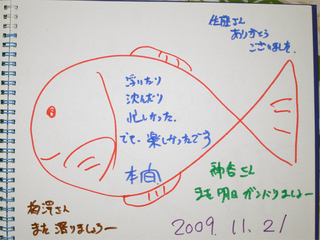 佐藤さん
ありがとう
ございました。
浮いたり
沈んだり
忙しかった。
でも、楽しかったですっ
本間
神谷さん
また明日ガンバりましょー
梅澤さん
また潜りましょうー
2009.11.21